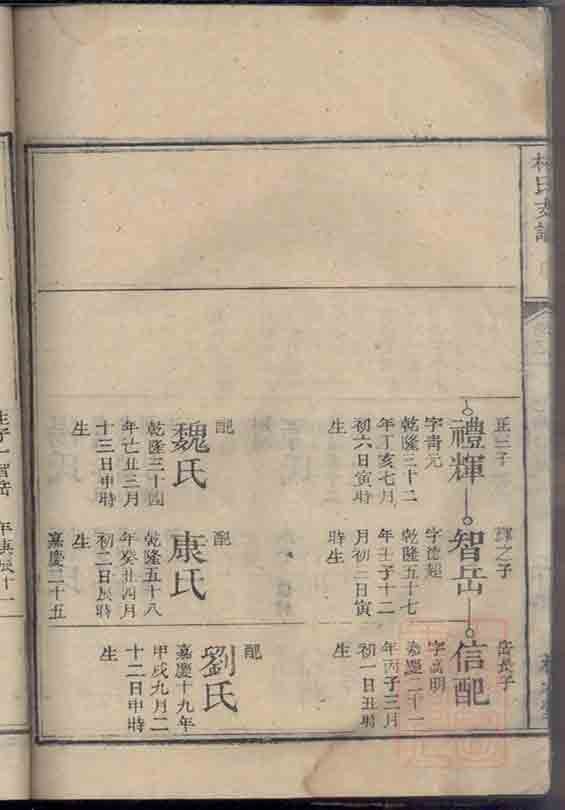 林氏支譜
正三子
禮輝
字青元
乾隆三十二
年丁亥七月
初六日寅時
生
配
魏氏
乾隆三十四
年亡丑三月
十三日申時
生
輝之子
智岳
字德超
乾隆五十七
年壬子十二
月初三日寅
時生
配
康氏
乾隆五十八
年癸丑四月
初二日辰時
生
嘉慶二十五
年庚辰十一
岳長子
信配
字高明
嘉慶二十一
年丙子三月
初一日丑時
生
配
劉氏
嘉慶十九年
甲戌九月二
十二日申時
生
生子一智岳